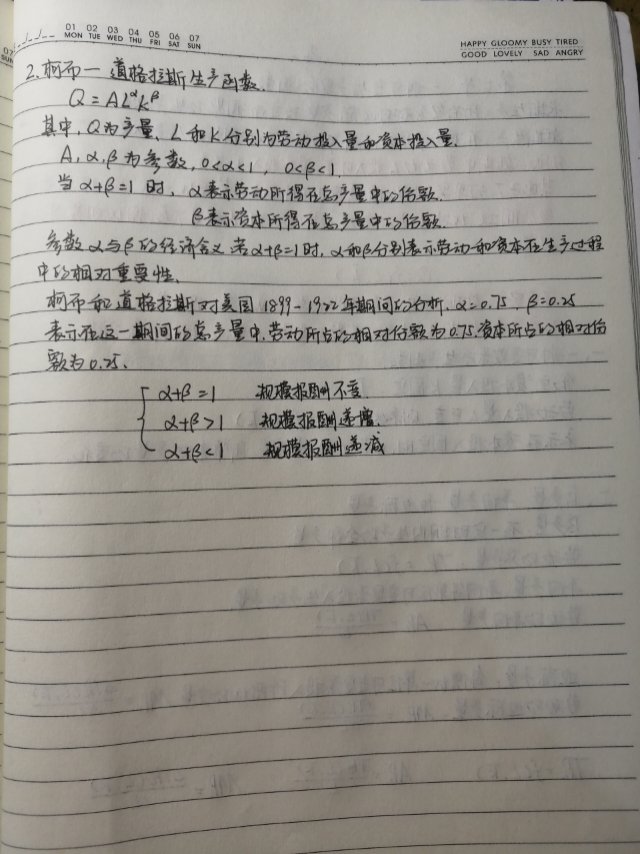 01 02 03 04 05 06 07
MON TUE WED THU FRI SAT SUN
HAPPY GLOOMY BUSY TIRED
GOOD LOVELY SAD ANGRY
2. 柯布一道格拉斯生产函数.
Q = A L^α K^β
其中, Q为产量、L和K分别为劳动投入量和资本投入量.
A, α, β 为参数, 0<α<1, 0<β<1.
当 α+β=1 时, α表示劳动所得在总产量中的份额.
β表示资本所得在总产量中的份额.
参数 α与β的经济含义.若α+β=1时, α和β分别表示劳动和资本在生产过程
中的相对重要性.
柯布和道格拉斯对美国 1899-1922年期间的分析. α=0.75, β=0.25
表示在这一期间的总产量中,劳动所占的相对份额为0.75.资本所占的相对份
额为 0.25.
α+β=1 规模报酬不变.
α+β>1 规模报酬递增.
α+β<1 规模报酬递减